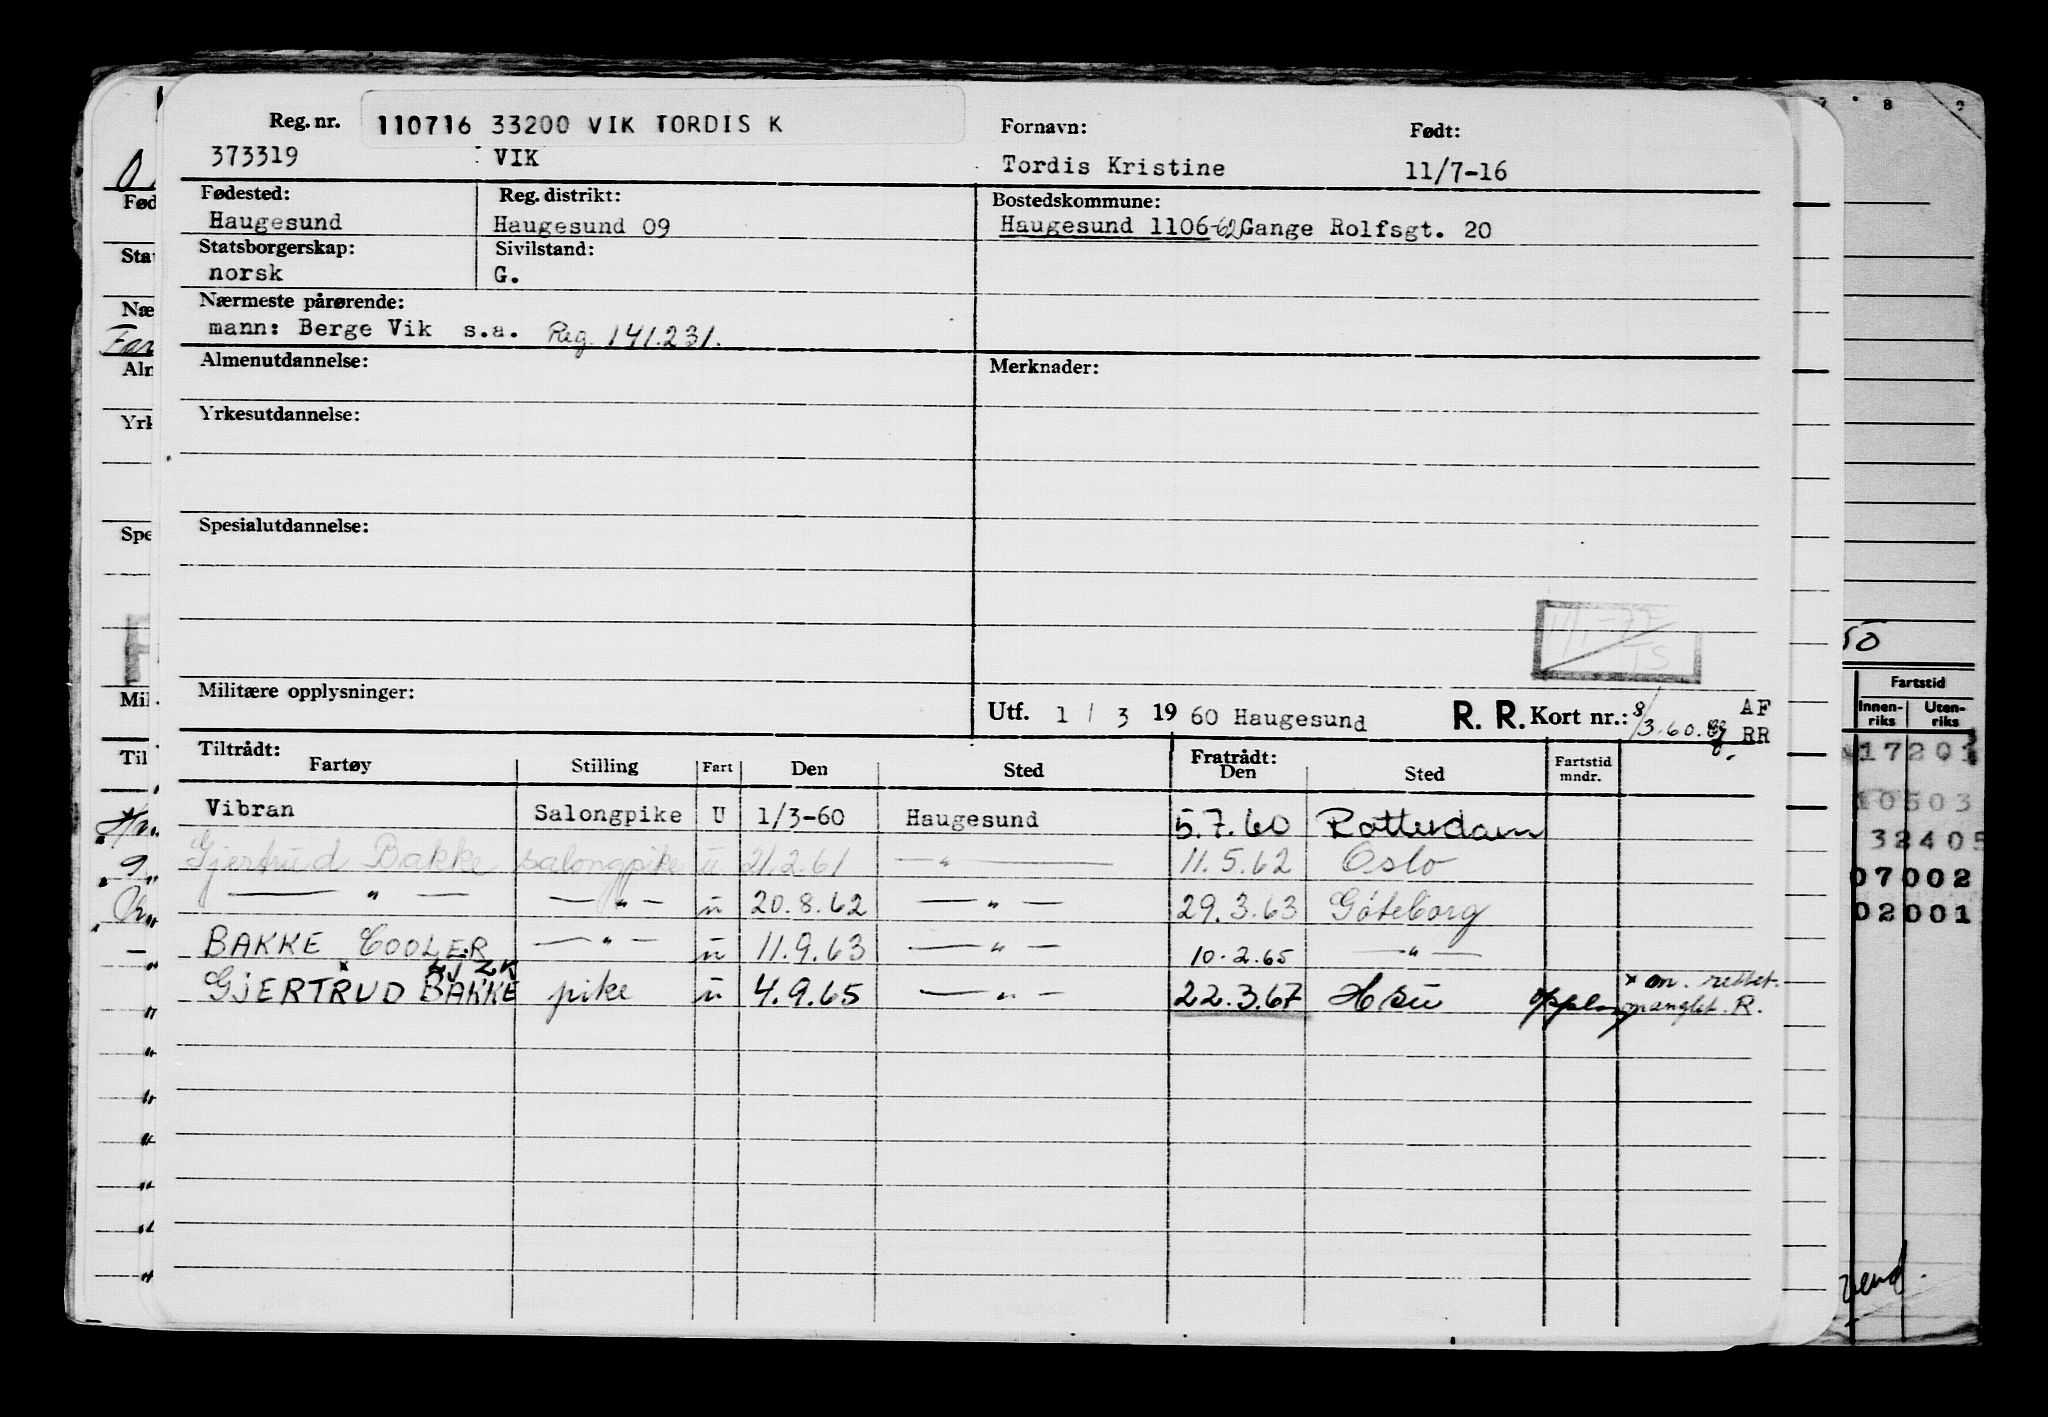 Reg. nr. 110716 33200 VIK TORDIS K Fornavn: Født:
373319 VIK Tordis Kristine 11/7-16
Fødested: Reg. distrikt: Bostedskommune:
Haugesund Haugesund 09 Haugesund 1106-62 Gange Rolfsgt. 20
Statsborgerskap: Sivilstand:
norsk G.
Nærmeste pårørende:
mann: Berge Vik s.a. Reg. 141.231.
Almenutdannelse: Merknader:
Yrkesutdannelse:
Spesialutdannelse:
Militære opplysninger:
Utf. 1 / 3 19 60 Haugesund R. R. Kort nr.: 8/3.60. AF
RR
Tiltrådt: Fratrådt:
Fartøy Stilling Fart Den Sted Den Sted Fartstid mndr.
Vibran Salongpike U 1/3-60 Haugesund 5.7.60 Rotterdam
Gjertrud Bakke salongpike u 21.2.61 — " — 11.5.62 Oslo
— " — — " — u 20.8.62 — " — 29.3.63 Göteborg
BAKKE COOLER — " — u 11.9.63 — " — 10.2.65 — " —
LJ ZK
GJERTRUD BAKKE pike u 4.9.65 — " — 22.3.67 Hsu x on. rettet.
manglet. R.
Fød
Sta
Næ
Far
Aln
Yrk
Spe
Mil
Til
8 9
50
Fartstid
Innen-riks Uten-riks
17201
10503
32405
07002
02001